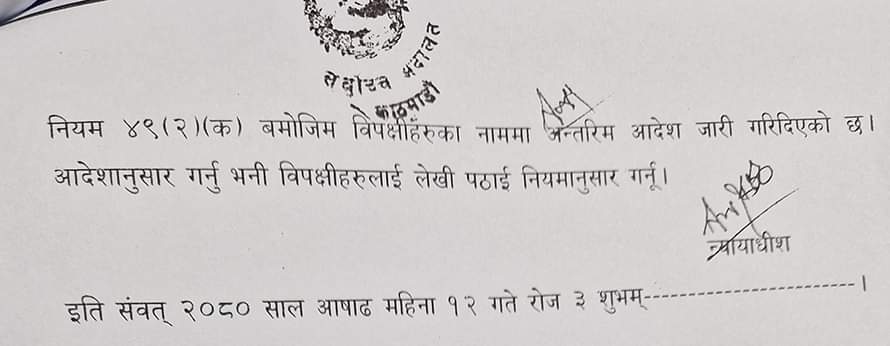 सर्वोच्च अदालत
काठमाडौं
नियम ४९(२)(क) बमोजिम विपक्षीहरुका नाममा अन्तरिम आदेश जारी गरिदिएको छ।
आदेशानुसार गर्नु भनी विपक्षीहरुलाई लेखी पठाई नियमानुसार गर्नू।
न्यायाधीश
इति संवत् २०८० साल आषाढ महिना १२ गते रोज ३ शुभम्-------------------------।